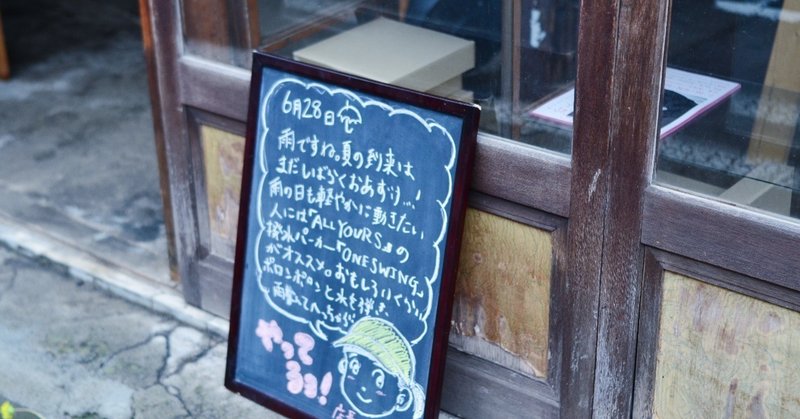 6月28日
雨ですね。夏の到来は
まだしばらくおあずけ…
雨の日も軽やかに動きたい
人には『ALL YOURS』の
撥水パーカー『ONE SWING』
がオススメ。おもしろいくらい
ポロンポロンと水を弾き、
雨
やって
るヨ!
店